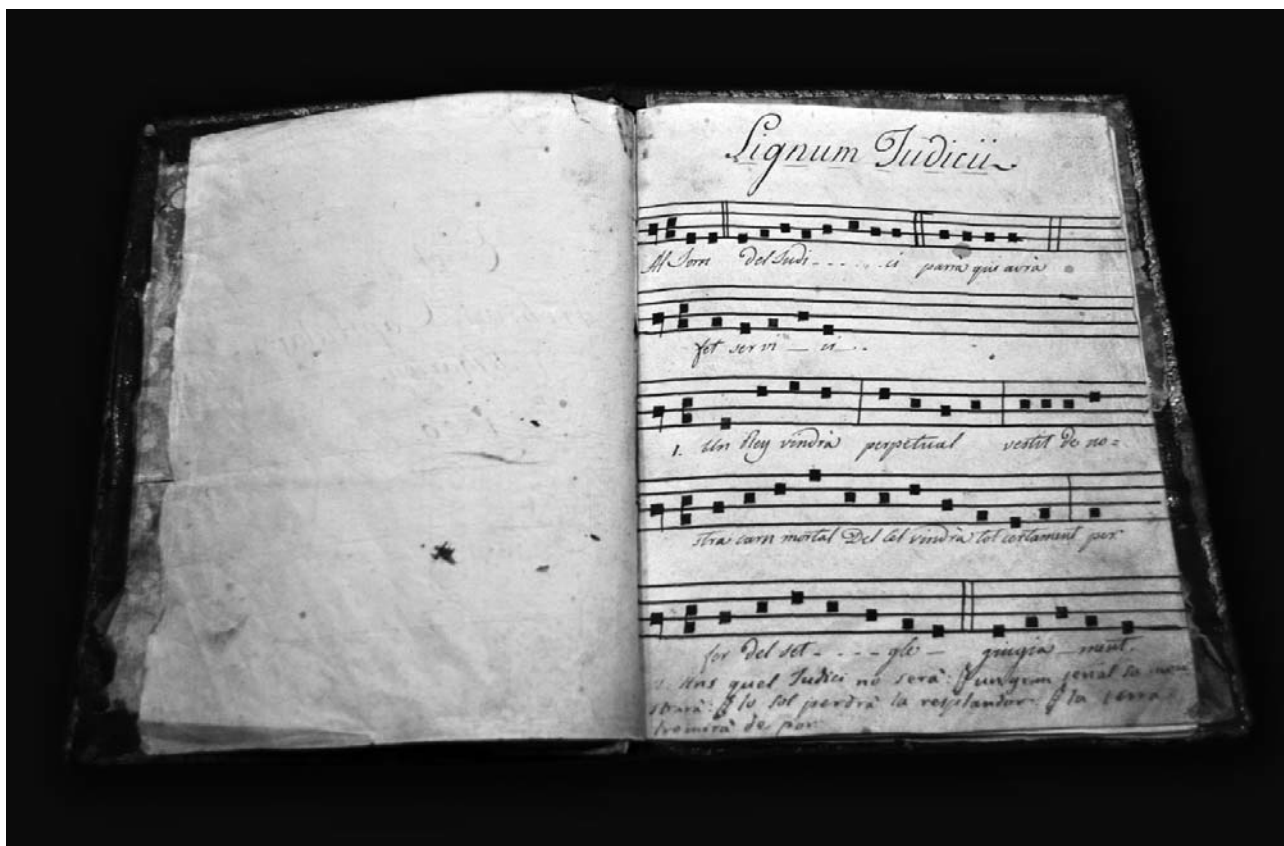 Lignum Judicii
Al Jorn del Judi - - - - - - ci parrà qui avrà
fet ser vi - ci - -
1. Un Rey vindrà perpetual vestit de no=
stra carn mortal Del Cel vindrà tot certament per
fer del set - - - - gle - giugia - ment.
2. Ans quel Judici no serà: un gran senal sa mon
strarà: lo sol perdrà la resplandor: la terra
tremirà de por: